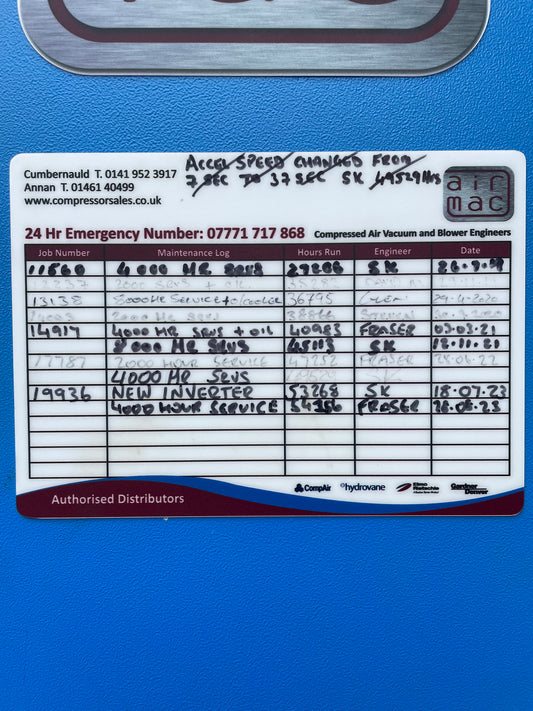 Cumbernauld T. 0141 952 3917
Annan T. 01461 40499
www.compressorsales.co.uk
ACCEL SPEED CHANGED FROM
7 SEC TO 37 SEC SK 49529 Hrs
air
mac
24 Hr Emergency Number: 07771 717 868 Compressed Air Vacuum and Blower Engineers
Job Number Maintenance Log Hours Run Engineer Date
11560 4000 HR SRVS SK
2000 SRVS + OIL
13138 8000HR SERVICE + O/COOLER 36795 29-4-2020
2000 HR SRVS
14917 4000 HR SRVS + OIL 40983 FRASER 03.03.21
2000 HR SRVS 45113 SK 12.11.21
17787 2000 HOUR SERVICE 47252 FRASER
4000 HR SRVS SK
19936 NEW INVERTER 53268 SK 18.07.23
4000 HOUR SERVICE FRASER
Authorised Distributors
CompAir hydrovane Elmo Rietschle Gardner Denver